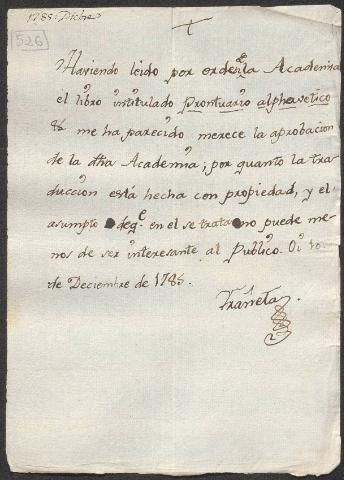 1785. Dicbre
526
Haviendo leido por orden de la Academia
el libro intitulado Prontuario alphavetico
&c me ha parecido merece la aprobacion
de la dha Academia; por quanto la tra
duccion está hecha con propiedad, y el
asumpto de qe en el se trata no puede me
nos de ser interesante al Publico.
de Deciembre de 1785.